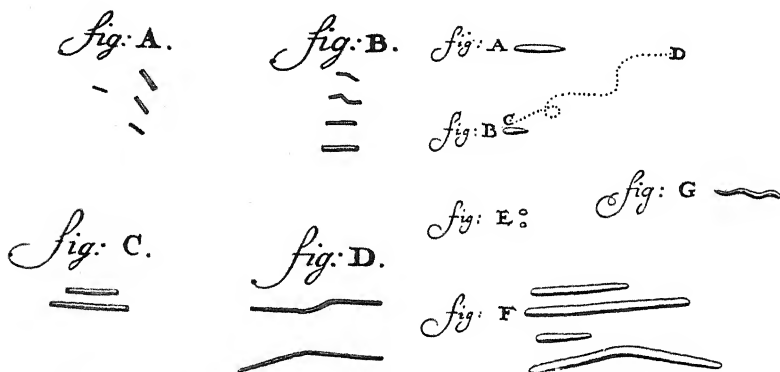 fig: A.
fig: B.
fig: C.
fig: D.
fig: A
D
C
fig: B
fig: E
fig: G
fig: F